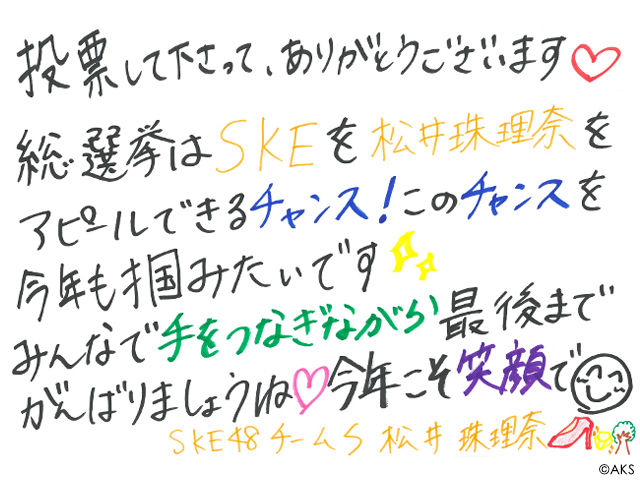 投票して下さって、ありがとうございます♡
総選挙はSKEを松井珠理奈を
アピールできるチャンス！このチャンスを
今年も掴みたいです
みんなで手をつなぎながら最後まで
がんばりましょうね♡今年こそ笑顔で
SKE48チームS 松井珠理奈
©AKS